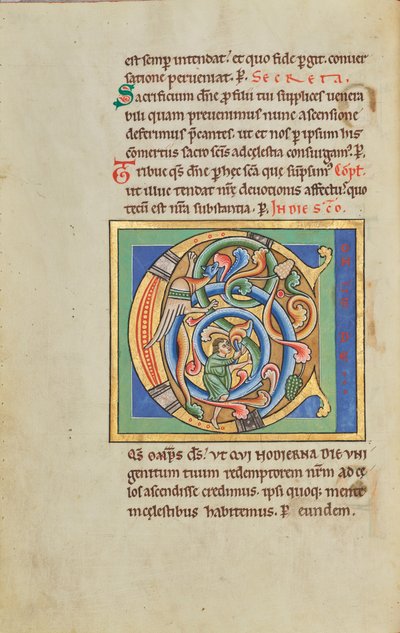 est semp̄ intendat. et quo fide p̱git. conver
satione perveniat. P̱. Secreta.
Sacrificium dñe p̱ filii tui supplices venera
bili quam prevenimus nunc ascensione
deferimus p̄cantes. ut et nos p̱ ipsum his
comertiis sacro sc̄is ad cęlestia consurgam᷒. P̱.
Tribue qs̄ dñe p̱ hęc sc̄a quę sūpsim᷒ Cōpl̄
ut illuc tendat nr̄ę devotionis affect᷒ quo
tecū est nr̄a substantia. P̱. IN DIE S̄CO.
QS OMP̄S D̄S. UT QUI HODIERNA DIE UNI
genitum tuum redemptorem nr̄m ad cę
los ascendisse credimus. ipsi quoq; mente
in cęlestibus habitemus. P̱ eundem.